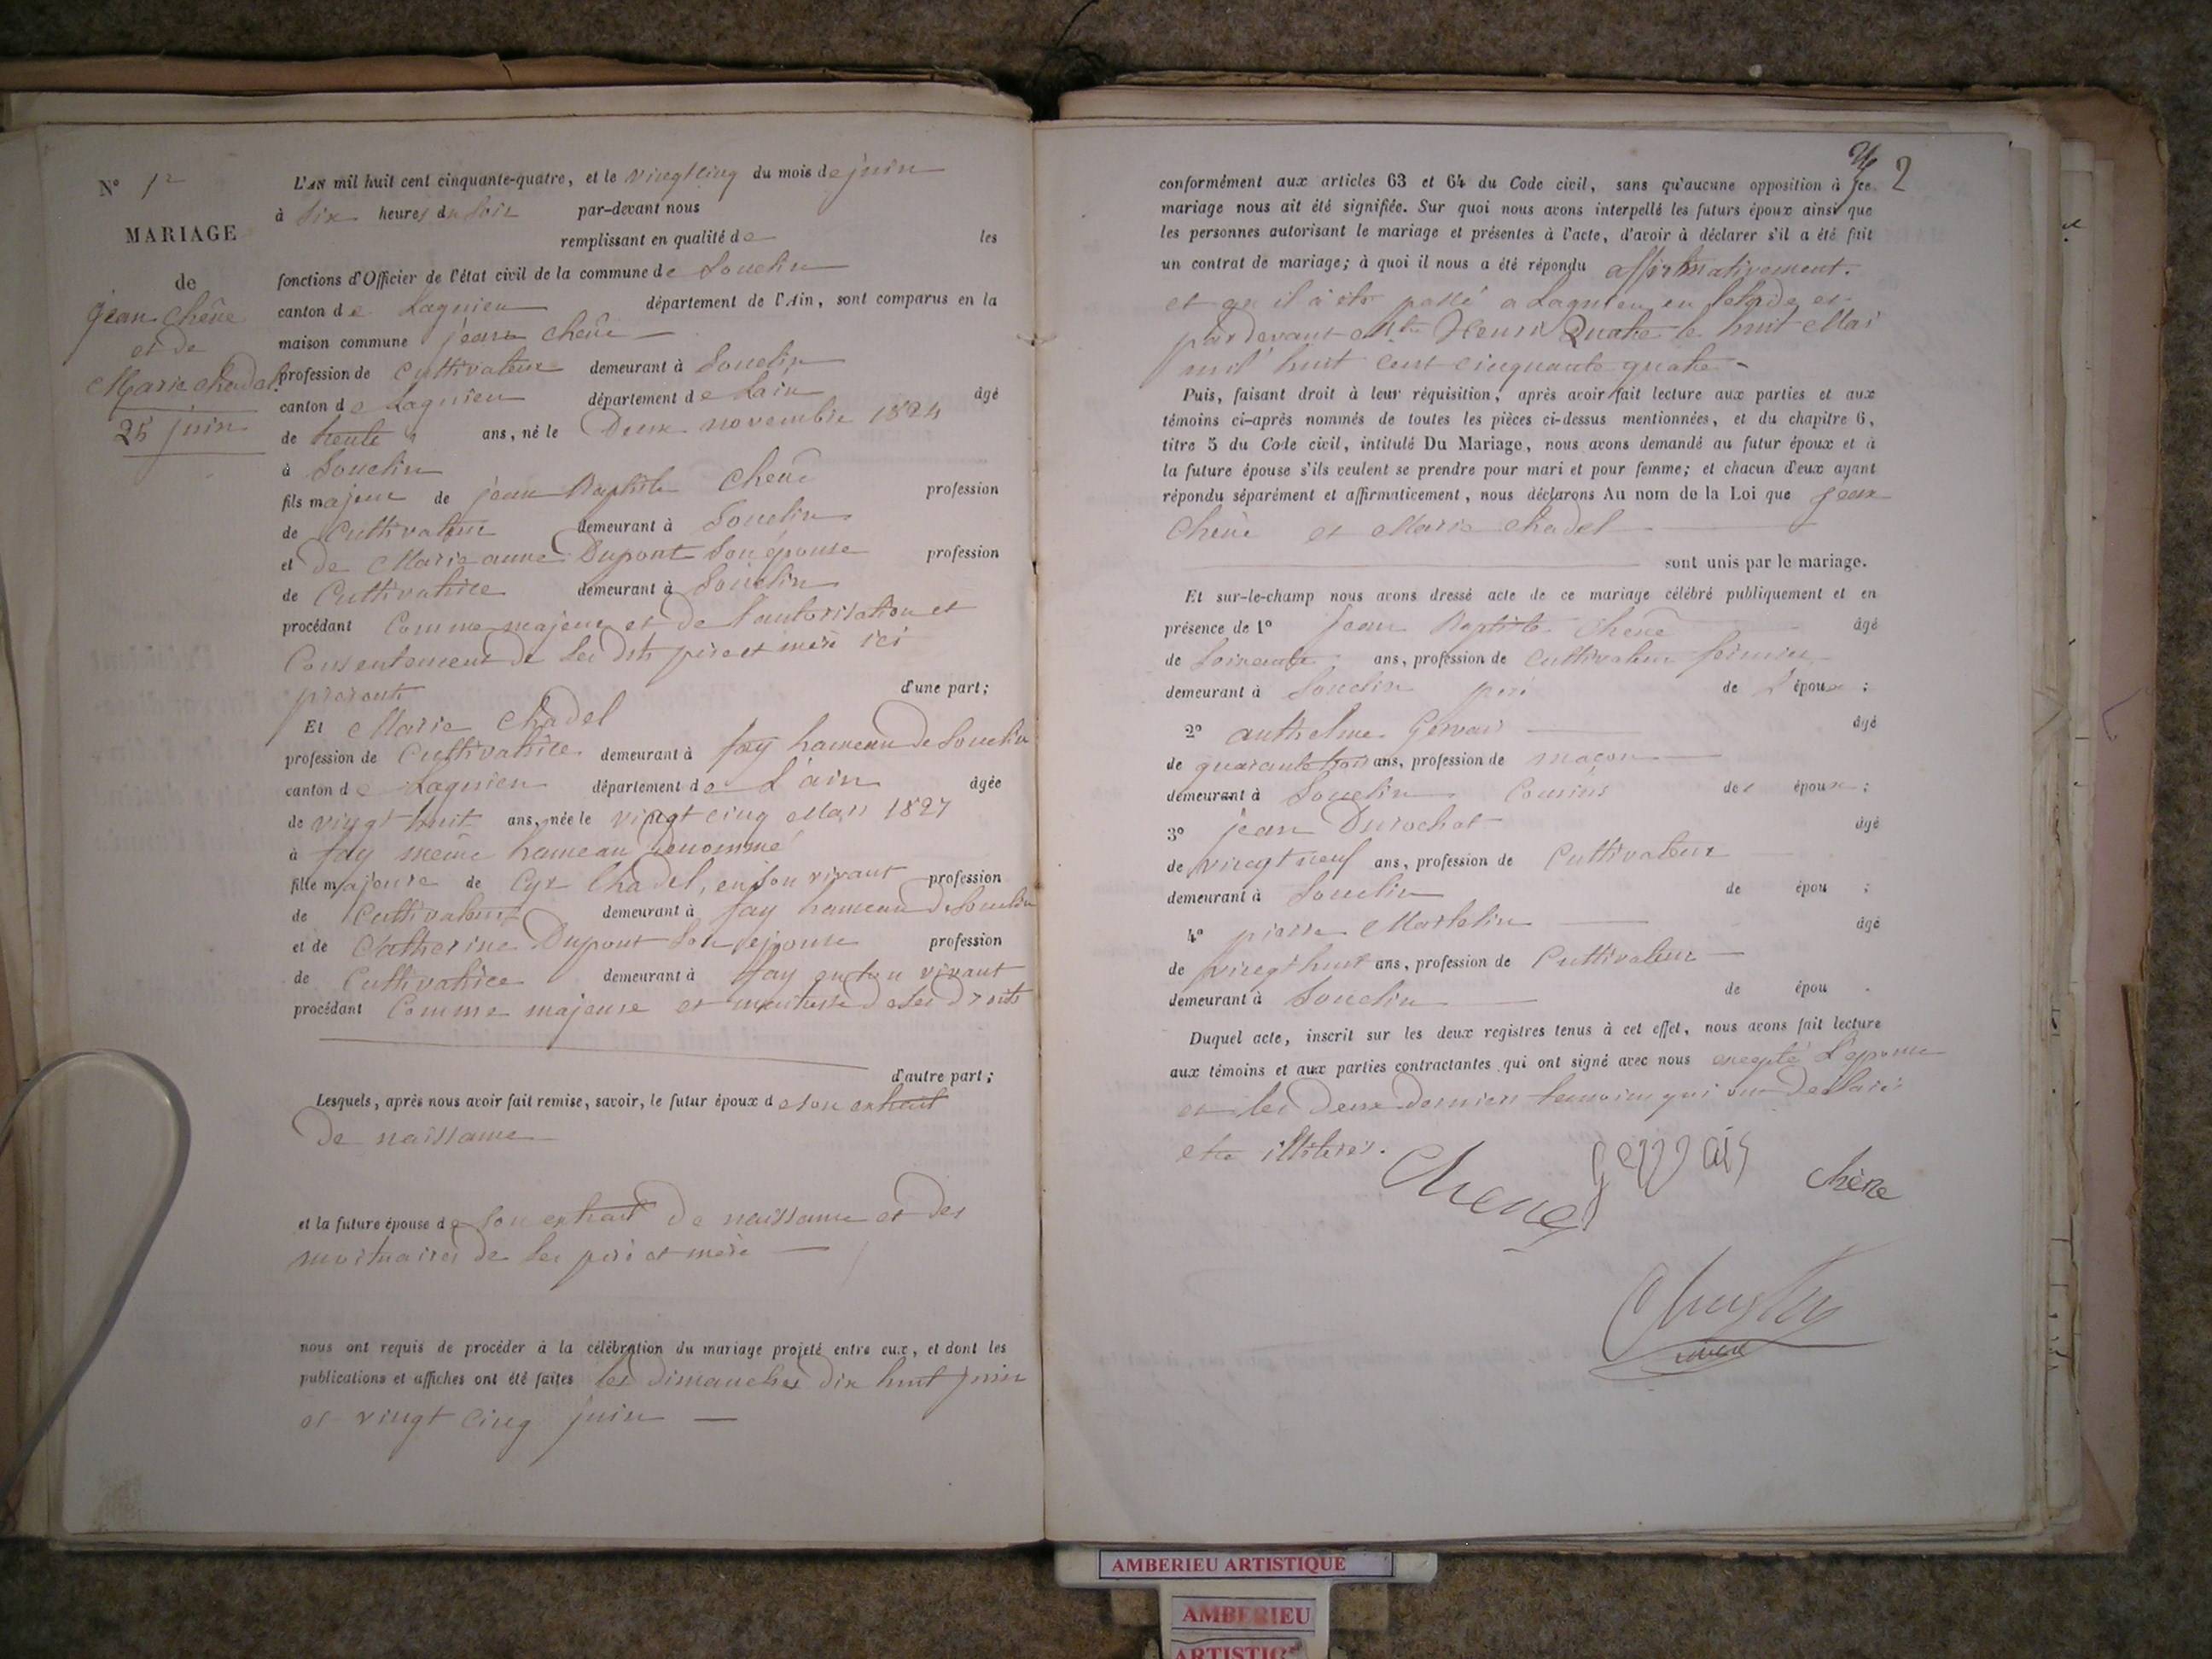 N° 12
MARIAGE
de
jean chêne
et de
Marie chadel
25 juin
L'AN mil huit cent cinquante-quatre, et le vingt cinq du mois de juin
à six heures du soir par-devant nous
remplissant en qualité de les
fonctions d'Officier de l'état civil de la commune de Souclin
canton de Lagnieu département de l'Ain, sont comparus en la
maison commune jean chêne
profession de Cultivateur demeurant à Souclin
canton de Lagnieu département de Lain âgé
de trente ans, né le Deux novembre 1824
à Souclin
fils majeur de jean Baptiste chêne profession
de Cultivateur demeurant à Souclin
et de Marie anne Dupont son épouse profession
de Cultivatrice demeurant à Souclin
procédant Comme majeur et de l'autorisation et
Consentement de ses dits père et mère ici
présents d'une part;
Et Marie chadel
profession de Cultivatrice demeurant à fay hameau de Souclin
canton de Lagnieu département de L'ain âgée
de vingt huit ans, née le vingt cinq Mars 1827
à fay même hameau denommé
fille majeure de Cyr Chadel, en son vivant profession
de Cultivateur demeurant à fay hameau de Souclin
et de Catherine Dupont son épouse profession
de Cultivatrice demeurant à fay en son vivant
procédant Comme majeure et maitresse de ses droits
d'autre part;
Lesquels, après nous avoir fait remise, savoir, le futur époux de son extrait
de naissance
et la future épouse de son extrait de naissance et des
mortuaires de ses père et mère
nous ont requis de procéder à la célébration du mariage projeté entre eux, et dont les
publications et affiches ont été faites les dimanches dix huit juin
et vingt cinq juin
2
conformément aux articles 63 et 64 du Code civil, sans qu'aucune opposition à ce
mariage nous ait été signifiée. Sur quoi nous avons interpellé les futurs époux ainsi que
les personnes autorisant le mariage et présentes à l'acte, d'avoir à déclarer s'il a été fait
un contrat de mariage; à quoi il nous a été répondu affirmativement.
et qu il à été passé a Lagnieu en l'etude et
par devant Mtre Henri Quatre le huit Mai
mil huit cent cinquante quatre
Puis, faisant droit à leur réquisition, après avoir fait lecture aux parties et aux
témoins ci-après nommés de toutes les pièces ci-dessus mentionnées, et du chapitre 6,
titre 5 du Code civil, intitulé Du Mariage, nous avons demandé au futur époux et à
la future épouse s'ils veulent se prendre pour mari et pour femme; et chacun d'eux ayant
répondu séparément et affirmativement, nous déclarons Au nom de la Loi que jean
Chêne et Marie Chadel
sont unis par le mariage.
Et sur-le-champ nous avons dressé acte de ce mariage célébré publiquement et en
présence de 1° Jean Baptiste Chêne âgé
de soixante ans, profession de cultivateur
demeurant à Souclin père de L époux ;
2° anthelme Gervais âgé
de quarante trois ans, profession de maçon
demeurant à Souclin Cousins des époux ;
3° jean Durochat âgé
de vingt neuf ans, profession de Cultivateur
demeurant à Souclin de épou ;
4° pierre Martelin âgé
de vingt huit ans, profession de Cultivateur
demeurant à Souclin de épou .
Duquel acte, inscrit sur les deux registres tenus à cet effet, nous avons fait lecture
aux témoins et aux parties contractantes qui ont signé avec nous excepté L'épouse
et les deux derniers temoins qui ont déclaré
etre illiteres.
Chene Gervais chêne
AMBERIEU ARTISTIQUE
AMBERIEU
ARTISTIQUE